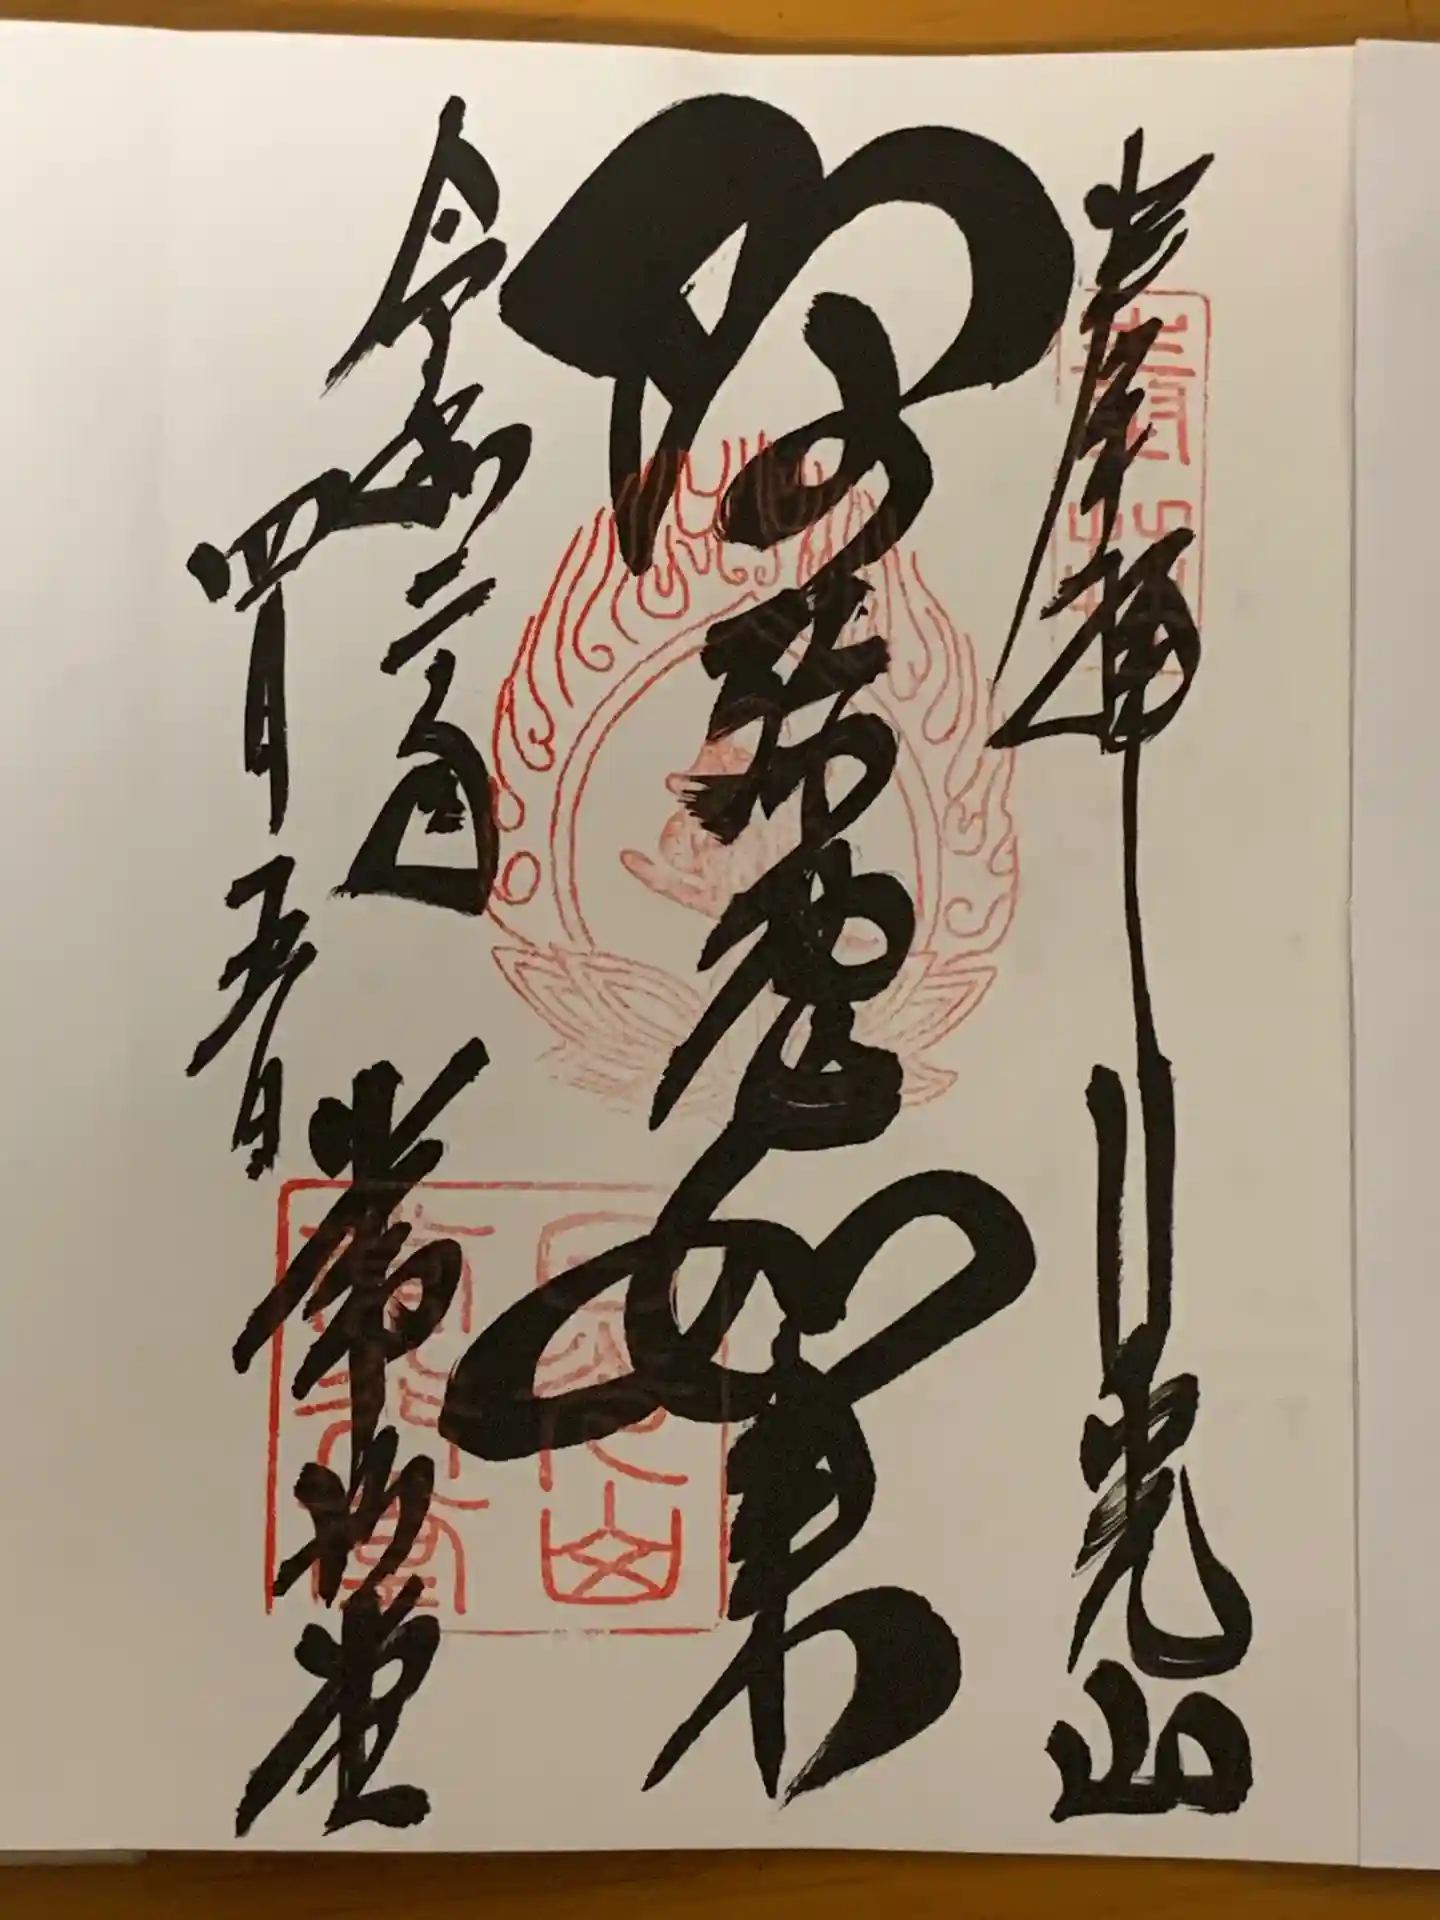 奉拝
日光山
阿弥陀如来
令和二年
四月五日
常行堂